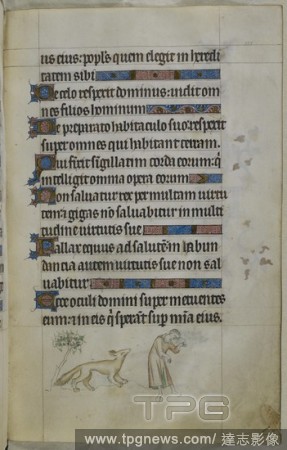 us eius: pop̄ls quem elegit in heredi
tatem sibi
De celo respexit dominus: uidit om
nes filios hominum
De preparato habitaculo suo: respexit
super omnes qui habitant terram.
Qui finxit sigillatim corda eorum: q̄
intelligit omnia opera eorum
Non saluatur rex per multam uirtu
tem: gigas nō saluabitur in multi
tudine uirtutis sue
Fallax equus ad salutē: in habun
dancia autem uirtutis sue non sal
uabitur
Ecce oculi domini super metuentes
eum: in eis q̄ sperāt sup̄ mīa eius.
TPG
www.tpgnews.com/ 達志影像